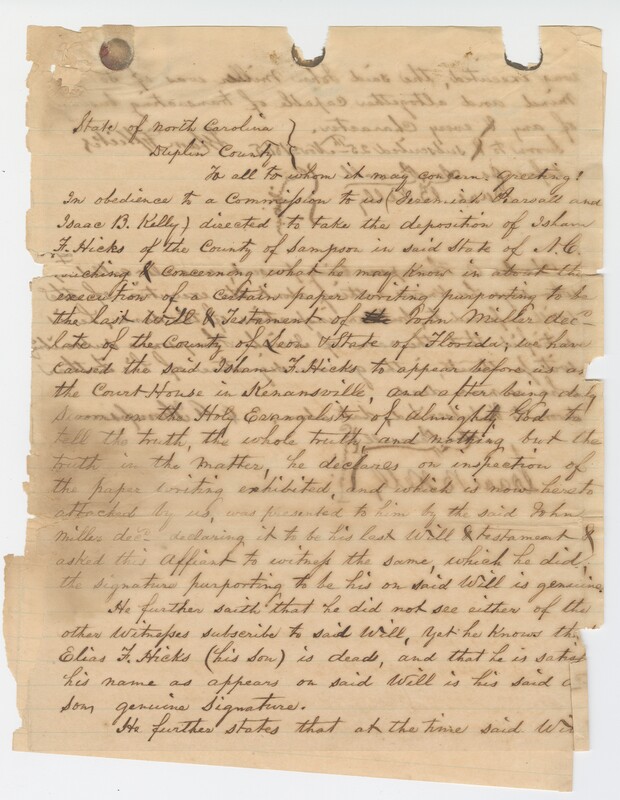 State of North Carolina
Duplin County
To all to whom it may concern. Greeting!
In obedience to a Commission to us (Jeremiah Pearsall and
Isaac B. Kelly) directed to take the deposition of Isham
F. Hicks of the County of Sampson in said State of N.C.
touching & concerning what he may know in about the
execution of a certain paper writing purporting to be
the last Will & Testament of John Miller decd
late of the County of Leon & State of Florida, we have
caused the said Isham F. Hicks to appear before us at
the Court House in Kenansville, and after being duly
sworn on the Holy Evangelists of Almighty God to
tell the truth, the whole truth, and nothing but the
truth in the matter, he declares on inspection of
the paper writing exhibited, and which is now hereto
attached by us, was presented to him by the said John
Miller decd declaring it to be his last Will & testament &
asked this Affiant to witness the same, which he did,
the signature purporting to be his on said Will is genuine.
He further saith that he did not see either of the
other Witnesses subscribe to said Will, Yet he knows tha
Elias F. Hicks (his son) is dead, and that he is satisf
his name as appears on said Will is his said
son, genuine signature.
He further states that at the time said Wil